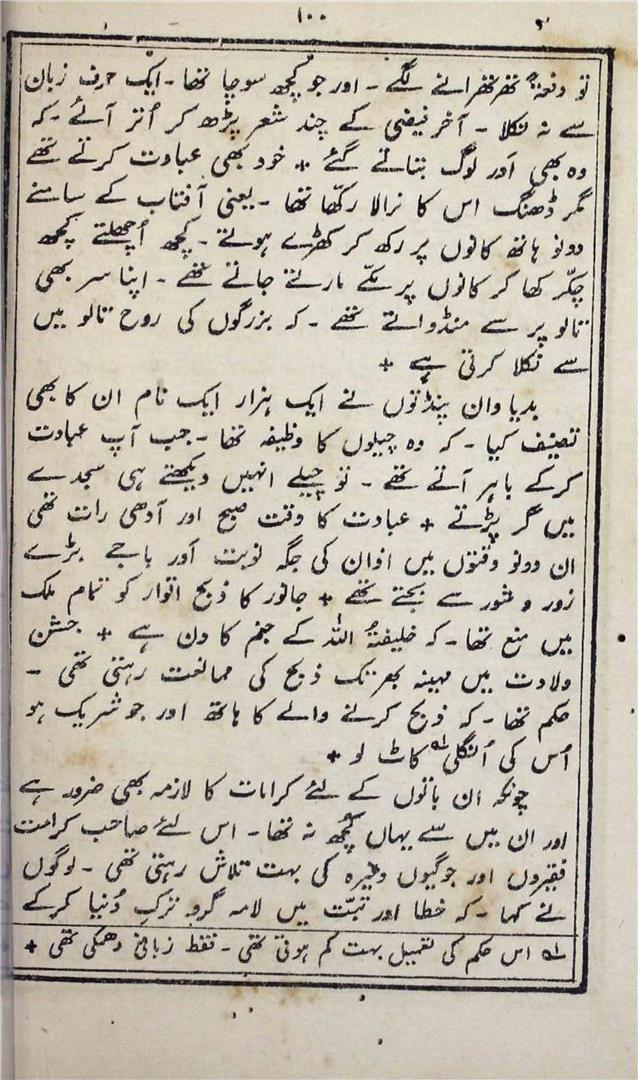 ۱۰۰
تو دفعتہً تھرتھرانے لگے ۔ اور جو کچھ سوچا تھا ۔ ایک حرف زبان
سے نہ نکلا ۔ آخر فیضی کے چند شعر پڑھ کر اُتر آئے ۔ کہ
وہ بھی اَور لوگ بتاتے گئے + خود بھی عبادت کرتے تھے
مگر ڈھنگ اس کا نرالا رکھّا تھا ۔ یعنی آفتاب کے سامنے
دونو ہاتھ کانوں پر رکھ کر کھڑے ہوتے ۔ کچھ اُچھلتے کچھ
چکّر کھا کر کانوں پر مکّے مارتے جاتے تھے ۔ اپنا سر بھی
تالو پر سے منڈواتے تھے ۔ کہ بزرگوں کی روح تالو میں
سے نکلا کرتی ہے +
بدیا وان پنڈتوں نے ایک ہزار ایک نام ان کا بھی
تصنیف کیا ۔ کہ وہ چیلوں کا وظیفہ تھا ۔ جب آپ عبادت
کرکے باہر آتے تھے ۔ تو چیلے انہیں دیکھتے ہی سجدے
میں گر پڑتے + عبادت کا وقت صبح اور آدھی رات تھی
ان دونو وقتوں میں اذان کی جگہ نوبت اَور باجے بڑے
زور و شور سے بجتے تھے + جانور کا ذبح اتوار کو تمام ملک
میں منع تھا ۔ کہ خلیفۂ اللہ کے جنم کا دن ہے + جشن
ولادت میں مہینہ بھر تک ذبح کی ممانعت رہتی تھی ۔
حکم تھا ۔ کہ ذبح کرنے والے کا ہاتھ اور جو شریک ہو
اُس کی اُنگلی ۱؎ کاٹ لو +
چونکہ ان باتوں کے لئے کرامات کا لازمہ بھی ضرور ہے
اور ان میں سے یہاں کُچھ نہ تھا ۔ اس لئے صاحب کرامت
فقیروں اور جوگیوں وغیرہ کی بہت تلاش رہتی تھی ۔ لوگوں
نے کہا ۔ کہ خطا اور تبّت میں لامہ گرو ترکِ دُنیا کرکے
۱؎ اس حکم کی تعمیل بہت کم ہوتی تھی ۔ فقط زبانی دھمکی تھی +